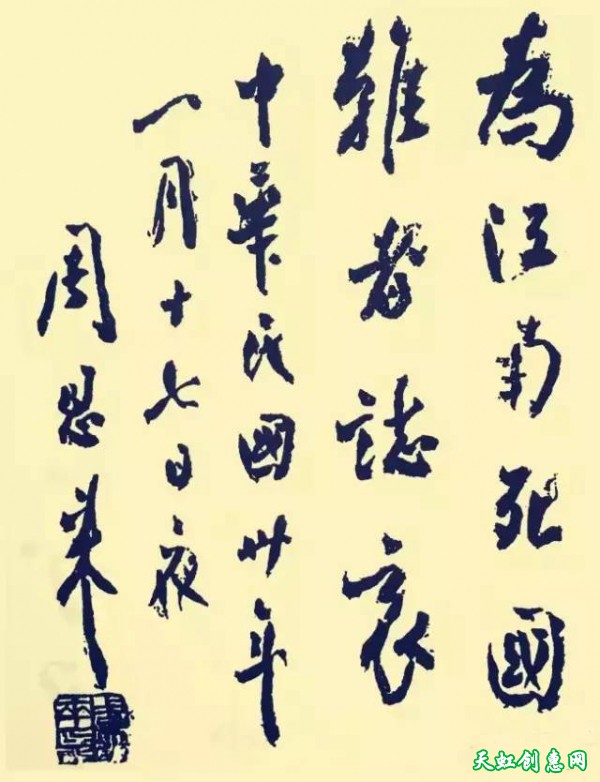 為江南死國
難者誌哀
中華民國卅年
一月十七日夜
周恩来
天虹创惠网